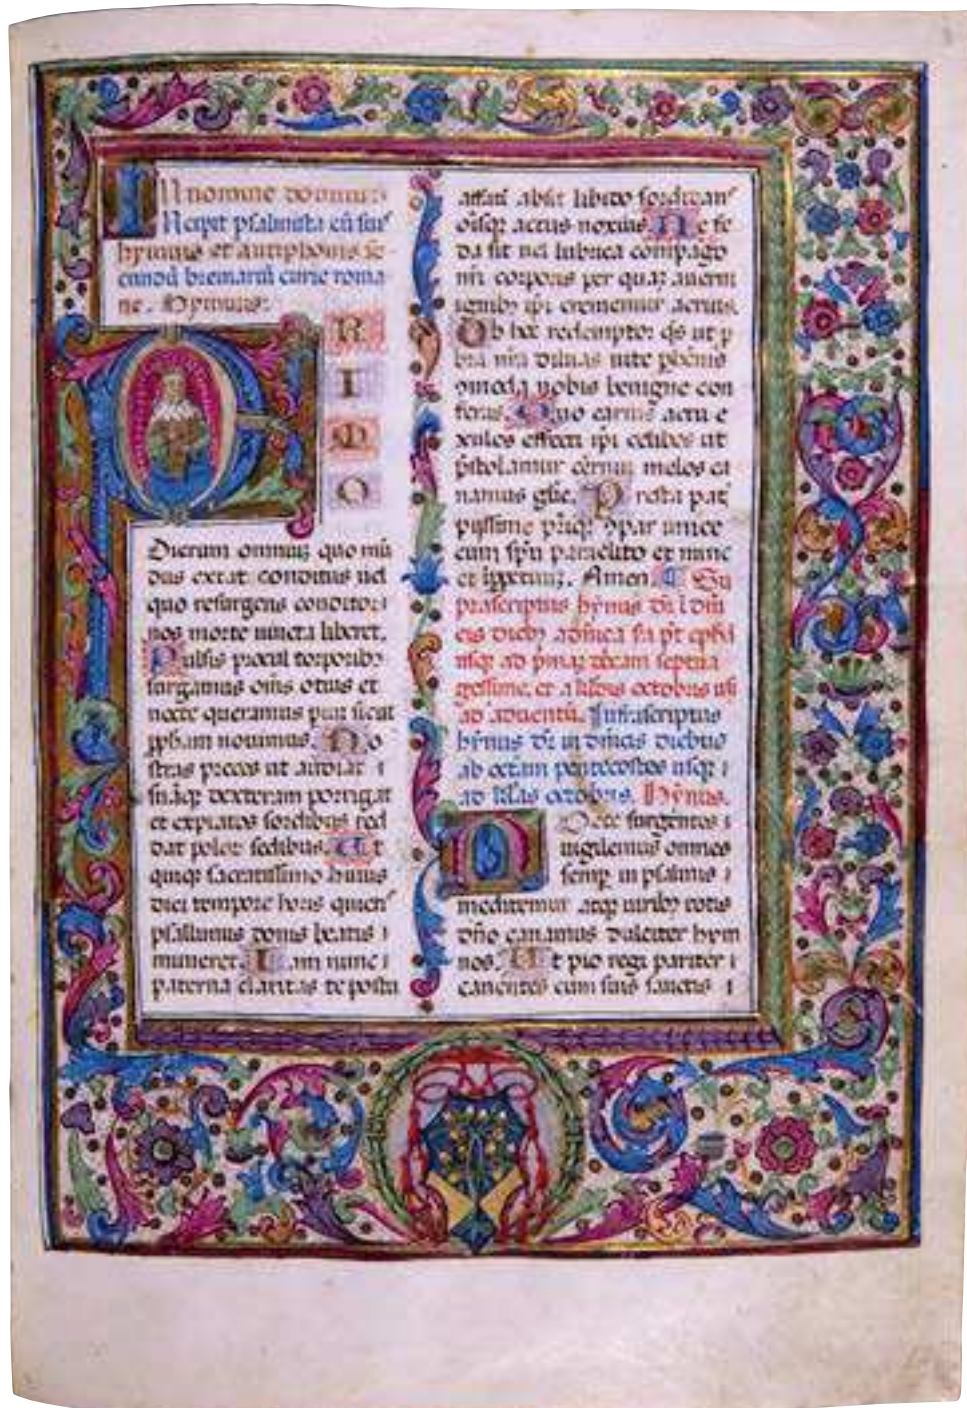 In nomine domini
Incipit psalmista cū suis
hymnis et antiphonis se
cundū breviariū curie roma
ne. Hymnus.
P
R
I
M
O
Dierum omniuꝫ quo mū
dus extat conditus uel
quo resurgens conditor
nos morte uincta liberet.
Pulsis procul torporibꝫ
surgamus oīns otius et
nocte queramus piuꝫ sicut
ꝓpham nouimus. No
stras preces ut audiat ⁊
suāqꝫ dexteram porrigat
et expiatos sordibus red
dat poloꝝ sedibus. Ut
quiqꝫ sacratissimo huius
diei tempore horis quieti⁹
psallimus donis beatis ⁊
muneret. Iam nunc ⁊
paterna claritas te postu
absit libido sordidans
oīsqꝫ actus noxius. Ne fe
da sit uel lubrica compago
nrī corporis per quaꝫ auerni
ignibꝫ ipī crememur acrius.
Ob hoc redemptor qs ut p
bra nrā diluas uite phēnis
ꝯmoda nobis benigne con
feras. Quo carnis actu e
xules effecti ipī celibes ut
p̄stolamur cernui melos ca
namus glīe. Presta pat̄
pijssime p̄riqꝫ ꝯpar unice
cum spū paraclito et nunc
et ī ꝑpetuuꝫ. Amen. ¶ Su
prascriptus hȳnus dī ī dnī
cis diebꝫ
usqꝫ ad p̄maꝫ dñcam septua
gessime, et a klēdis octobris usqꝫ
ad aduentū. Infrascriptus
hȳnus dī in dnīcis diebus
ab octaū pentecostes usqꝫ ⁊
ad klēas octobris. Hȳnus.
Nocte surgentes ⁊
uigilemus omnes
semp̄ in psalmis ⁊
meditemur atqꝫ uiribꝫ totis
dn̄o canamus dulciter hym
nos. Ut pio regi pariter ⁊
canentes cum suis sanctis ⁊